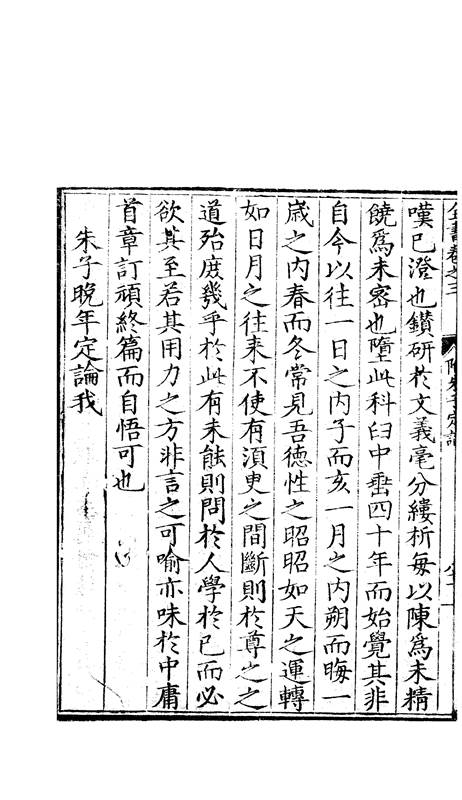 全書卷之三
附朱子定論
嘆已澄也鑚研於文義毫分縷析每以陳爲未精
饒爲未密也墮此科臼中垂四十年而始覺其非
自今以往一日之內子而亥一月之內朔而晦一
歲之內春而冬常見吾德性之昭昭如天之運轉
如日月之往来不使有湏臾之間斷則於尊之之
道殆庶幾乎於此有未能則問於人學於已而必
欲其至若其用力之方非言之可喻亦味於中庸
首章訂頑終篇而自悟可也
朱子晚年定論我